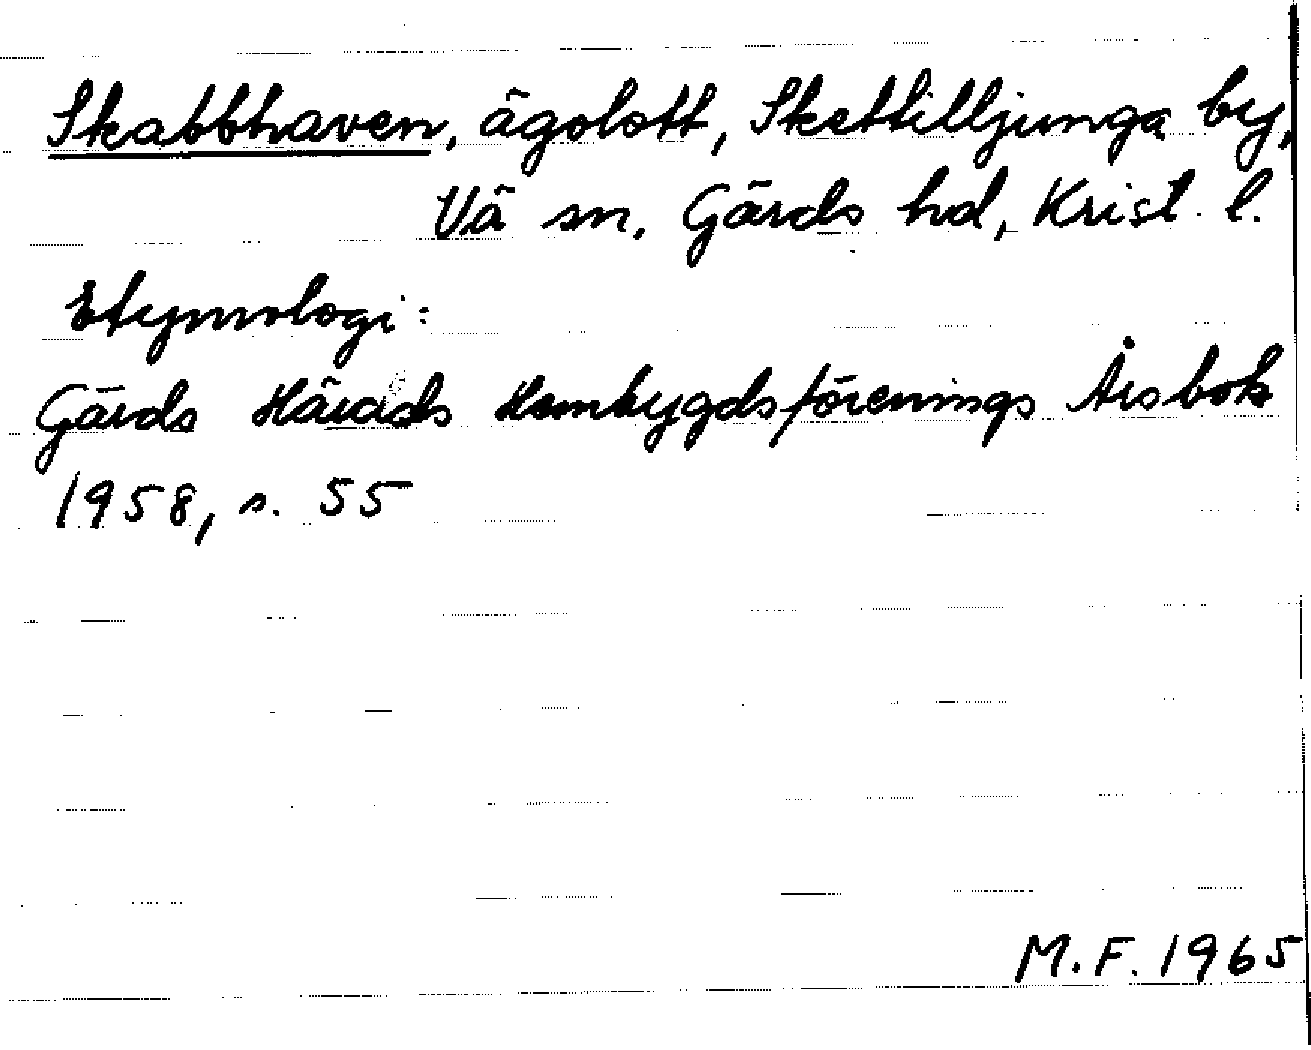 Skabbhaven, ägolott, Skettilljunga by,
Vä sn, Gärds hd, Krist. l.
Etymologi:
Gärds Härads Hembygdsförenings Årsbok
1958, s. 55
M.F. 1965